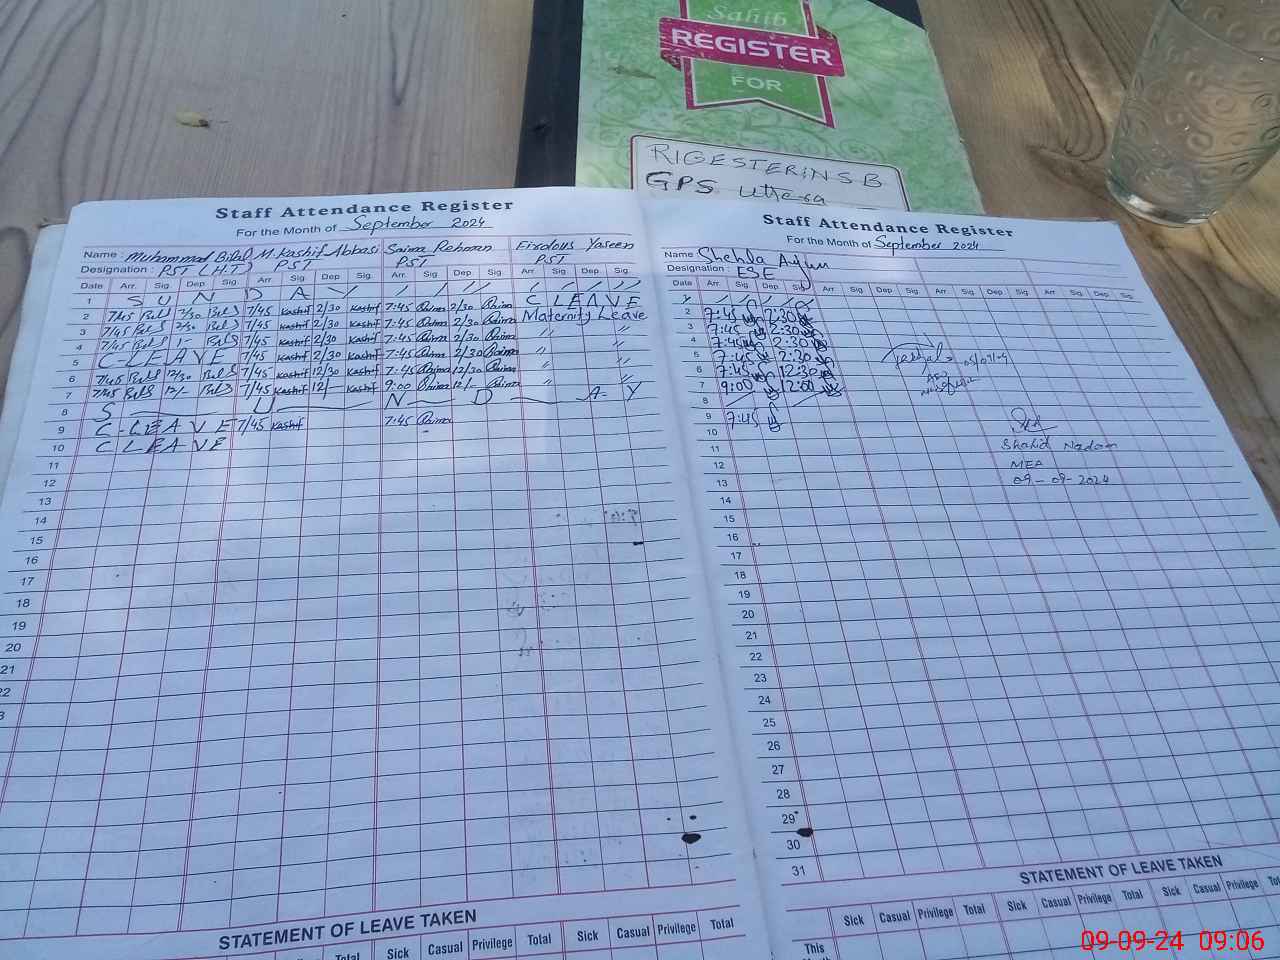 Sahib
REGISTER
FOR
RIGESTERINSB
GPS Uttesa
Staff Attendance Register
For the Month of September 2024
Name : Muhammad Bilal M. Kashif Abbasi Saima Rehman Firdous Yaseen
Designation : PST (H.T) PST PST PST
Date Arr. Sig. Dep Sig. Arr Sig. Dep Sig. Arr. Sig. Dep. Sig. Arr. Sig. Dep Sig.
1 S U N D A Y
2 7/45 2/30 7/45 Kashif 2/30 Kashif 7:45 2/30 C LEAVE
3 7/45 2/30 7/45 Kashif 2/30 Kashif 7:45 2/30 Maternity Leave
4 7/45 1- 7/45 Kashif 2/30 Kashif 7:45 2/30 " "
5 C-LEAVE 7/45 Kashif 2/30 Kashif 7:45 2/30 " "
6 7/45 12/30 7/45 Kashif 12/30 Kashif 7:45 12/30 " "
7 7/45 12/- 7/45 Kashif 12/- Kashif 9:00 12/- " "
8 S U N D A Y
9 C-LEAVE 7/45 Kashif 7:45
10 C LEAVE
11
12
13
14
15
16
17
18
19
20
21
22
3
STATEMENT OF LEAVE TAKEN
Total Sick Casual Privilege Total Sick Casual Privilege Total
Staff Attendance Register
For the Month of September 2024
Name : Shehla
Designation : ESE
Date Arr. Sig. Dep Sig. Arr. Sig. Dep. Sig. Arr. Sig. Dep. Sig. Arr. Sig. Dep Sig.
2 7:45 2:30
3 7:45 2:30
4 7:45 2:30
5 7:45 2:30
6 7:45 12:30
7 9:00 12:00
8
9 7:45
10
11 Shahid
12 MEA
13 09-09-2024
14
15
16
17
18
19
20
21
22
23
24
25
26
27
28
29
30
31
STATEMENT OF LEAVE TAKEN
Sick Casual Privilege Total Sick Casual Privilege
This
Month
09-09-24 09:06